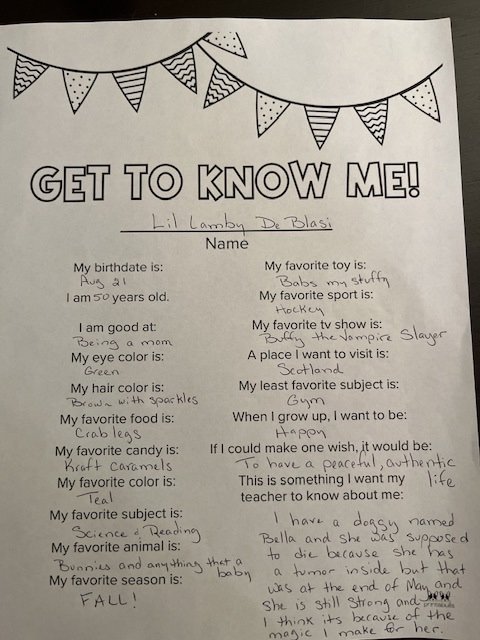 GET TO KNOW ME!
Lil Lamby De Blasi
Name
My birthdate is:
Aug 21
I am 50 years old.
I am good at:
Being a mom
My eye color is:
Green
My hair color is:
Brown with sparkles
My favorite food is:
Crab legs
My favorite candy is:
Kraft Caramels
My favorite color is:
Teal
My favorite subject is:
Science & Reading
My favorite animal is:
Bunnies and anything that a
baby
My favorite season is:
FALL!
My favorite toy is:
Babs my stuffy
My favorite sport is:
Hockey
My favorite tv show is:
Buffy the Vampire Slayer
A place I want to visit is:
Scotland
My least favorite subject is:
Gym
When I grow up, I want to be:
Happy
If I could make one wish, it would be:
To have a peaceful, authentic
life
This is something I want my
teacher to know about me:
I have a doggy named
Bella and she was supposed
to die because she has
a tumor inside but that
was at the end of May and
she is still Strong and
I think its because of the
magic I make for her.